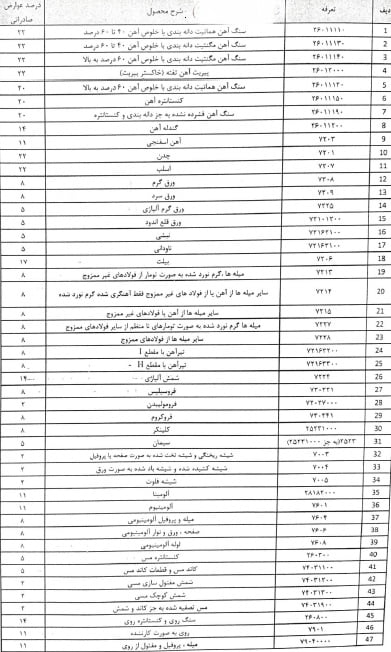 ردیف تعرفه شرح محصول درصد عوارض صادراتی
1 ۲۶۰۱۱۱۱۰ سنگ آهن هماتیت دانه بندی با خلوص آهن ۴۰ تا ۶۰ درصد ۲۲
2 ۲۶۰۱۱۱۳۰ سنگ آهن مگنتیت دانه بندی با خلوص آهن ۴۰ تا ۶۰ درصد ۲۲
3 ۲۶۰۱۱۱۴۰ سنگ آهن مگنتیت دانه بندی با خلوص آهن ۶۰ درصد به بالا ۲۲
4 ۲۶۰۱۲۰۰۰ پیریت آهن تفته (خاکستر پیریت) ۲۲
5 ۲۶۰۱۱۱۲۰ سنگ آهن هماتیت دانه بندی با خلوص آهن ۶۰ درصد به بالا ۲۰
6 ۲۶۰۱۱۱۵۰ کنسانتره آهن ۲۰
7 ۲۶۰۱۱۱۹۰ سنگ آهن فشرده نشده به جز دانه بندی و کنسانتره ۲۰
8 ۲۶۰۱۱۲۰۰ گندله آهن ۱۴
9 ۷۲۰۳ آهن اسفنجی ۱۱
10 ۷۲۰۱ چدن ۲۲
11 ۷۲۰۷ اسلب ۲۲
12 ۷۲۰۸ ورق گرم ۸
13 ۷۲۰۹ ورق سرد ۸
14 ۷۲۲۵ ورق گرم آلیاژی ۵
15 ۷۲۱۰۱۲۰۰ ورق قلع اندود ۵
16 ۷۲۱۶۲۱۰۰ نبشی ۵
17 ۷۲۱۶۳۱۰۰ ناودانی ۵
18 ۷۲۰۶ بیلت ۱۷
19 ۷۲۱۳ میله ها گرم نورد شده به صورت تومار از فولادهای غیر ممزوج ۸
20 ۷۲۱۴ سایر میله ها از آهن یا از فولاد های غیر ممزوج فقط آهنگری شده گرم نورد شده ۸
21 ۷۲۱۵ سایر میله ها از آهن یا فولادهای غیر ممزوج ۸
22 ۷۲۲۷ میله ها گرم نورد شده به صورت تومارهای نا منظم از سایر فولادهای ممزوج ۸
23 ۷۲۲۸ سایر میله ها از فولادهای ممزوج ۸
24 ۷۲۱۶۳۲۰۰ تیرآهن با مقطع I ۸
25 ۷۲۱۶۳۳۰۰ تیرآهن با مقطع H ۸
26 ۷۲۲۴ شمش آلیاژی ۱۴
27 فروسیلیس ۸
28 فرومولیبدن ۲
29 فروکروم ۸
30 ۲۵۲۳۱۰۰۰ کلینکر ۸
31 ۲۵۲۳ (به جز ۲۵۲۳۱۰۰۰) سیمان ۵
32 ۷۰۰۳ شیشه ریختگی و شیشه تخت شده به صورت صفحه یا پروفیل ۲
33 ۷۰۰۴ شیشه کشیده شده و شیشه باد شده به صورت ورق ۲
34 ۷۰۰۵ شیشه فلوت ۲
35 ۲۸۱۸۲۰۰۰ آلومینا ۱۱
36 ۷۶۰۱ آلومینیوم ۱۱
37 ۷۶۰۴ میله و پروفیل آلومینیومی ۸
38 ۷۶۰۶ صفحه ، ورق و نوار آلومینیومی ۸
39 ۷۶۰۸ لوله آلومینیومی ۸
40 ۲۶۰۳۰۰ کنسانتره مس ۵
41 ۷۴۰۳۱۱۰۰ کاتد مس و قطعات کاتد مس ۵
42 ۷۴۰۳۱۲۰۰ شمش مفتول سازی مسی ۲
43 ۷۴۰۳۱۳۰۰ شمش کوچک مسی ۲
44 ۷۴۰۳۱۹۰۰ مس تصفیه شده به جز کاتد و شمش ۲
45 ۲۶۰۸۰۰ سنگ روی و کنسانتره روی ۱۴
46 ۷۹۰۱ روی به صورت کارنشده ۱۱
47 ۷۹۰۴۰۰۰۰ میله ، پروفیل و مفتول از روی ۱۱